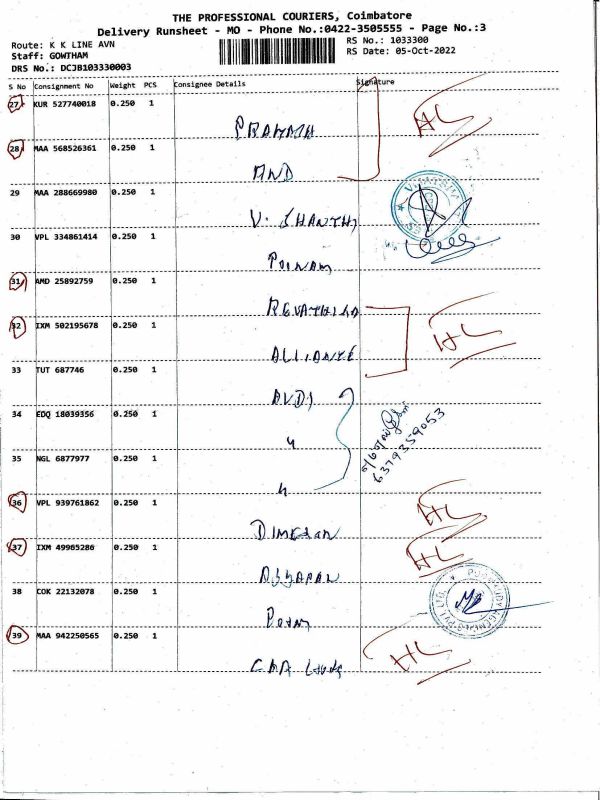 THE PROFESSIONAL COURIERS, Coimbatore
Delivery Runsheet - MO - Phone No.:0422-3505555 - Page No.:3
Route: K K LINE AVN
RS No.: 1033300
Staff: GOWTHAM
RS Date: 05-Oct-2022
DRS No.: DCJB103330003
S No Consignment No Weight PCS Consignee Details Signature
27 KUR 527740018 0.250 1
HL
28 MAA 568526361 0.250 1
AND
29 MAA 288669980 0.250 1
V. SHANTHI
30 VPL 334861414 0.250 1
POONAM
31 AMD 25892759 0.250 1
32 IXM 502195678 0.250 1
HL
33 TUT 687746 0.250 1
AVDJ
34 EDQ 18039356 0.250 1
6379359053
35 NGL 6877977 0.250 1
36 VPL 939761862 0.250 1
HL
37 IXM 49985286 0.250 1
HL
38 COK 22132078 0.250 1
39 MAA 942250565 0.250 1
HL